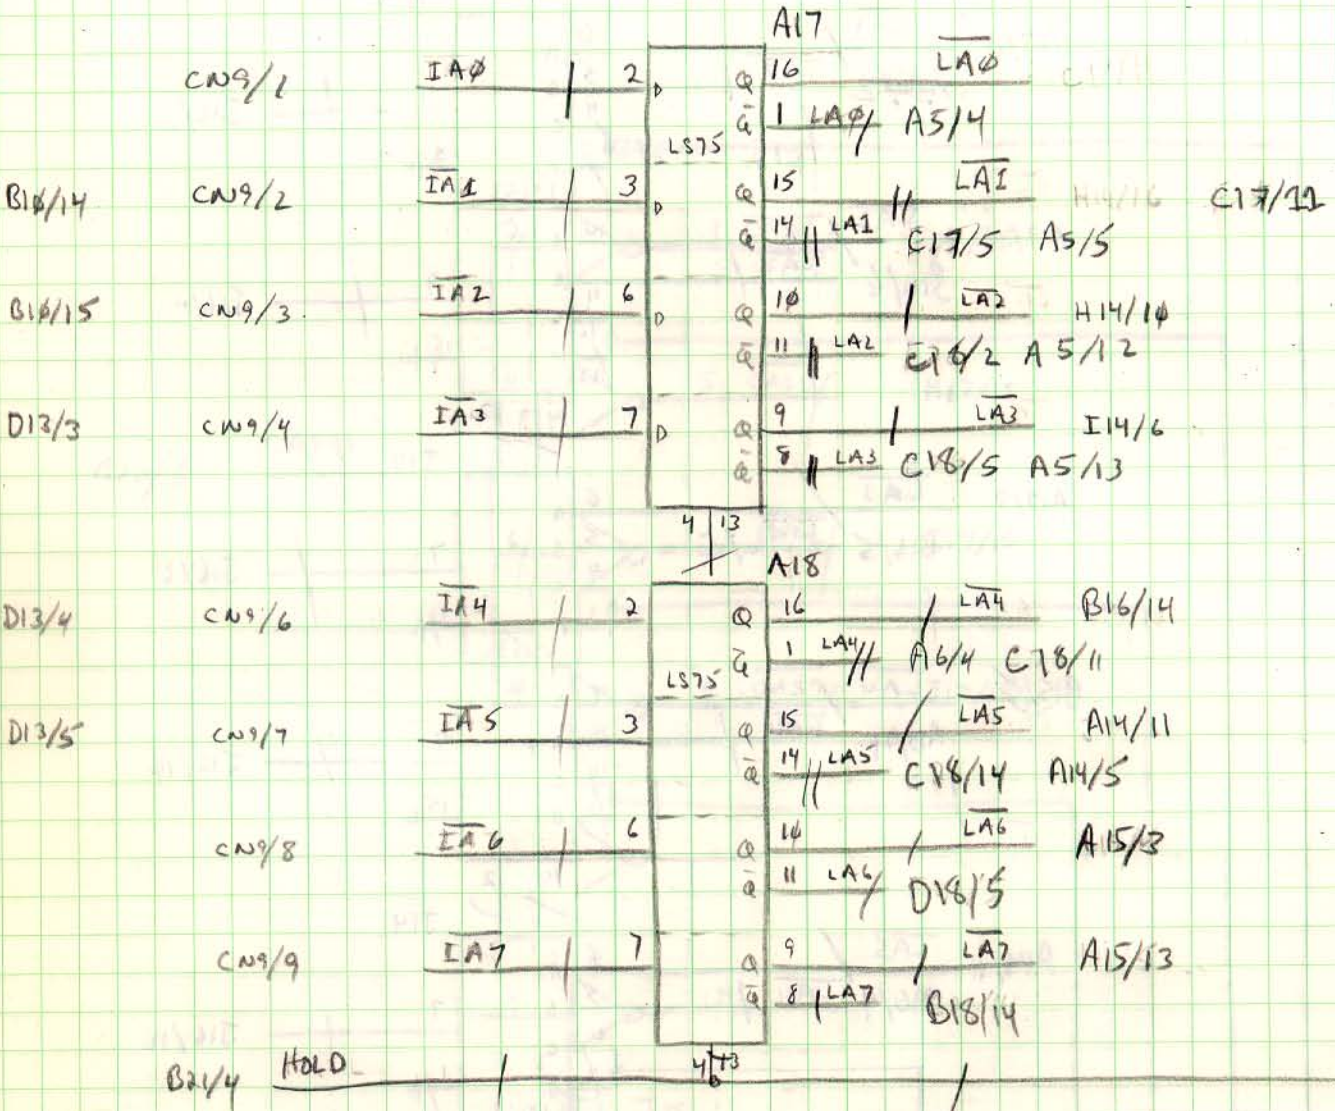 A17
CN9/1 IAØ 2 D Q 16 L̅A̅Ø̅
Q̅ 1 LAØ A5/4
LS75
B1Ø/14 CN9/2 I̅A̅1 3 D Q 15 L̅A̅1̅ C17/11
Q̅ 14 LA1 C17/5 A5/5
B1Ø/15 CN9/3 I̅A̅2 6 D Q 1Ø L̅A̅2̅ H14/1Ø
Q̅ 11 LA2 A5/12
D13/3 CN9/4 I̅A̅3 7 D Q 9 L̅A̅3̅ I14/6
Q̅ 8 LA3 C18/5 A5/13
4 13
A18
D13/4 CN9/6 I̅A̅4 2 Q 16 L̅A̅4̅ B16/14
Q̅ 1 LA4 A6/4 C18/11
LS75
D13/5 CN9/7 I̅A̅5 3 Q 15 L̅A̅5̅ A14/11
Q̅ 14 LA5 C18/14 A14/5
CN9/8 I̅A̅6 6 Q 1Ø L̅A̅6̅ A15/3
Q̅ 11 LA6 D18/5
CN9/9 I̅A̅7 7 Q 9 L̅A̅7̅ A15/13
Q̅ 8 LA7 B18/14
4 13
B21/4 HOLD